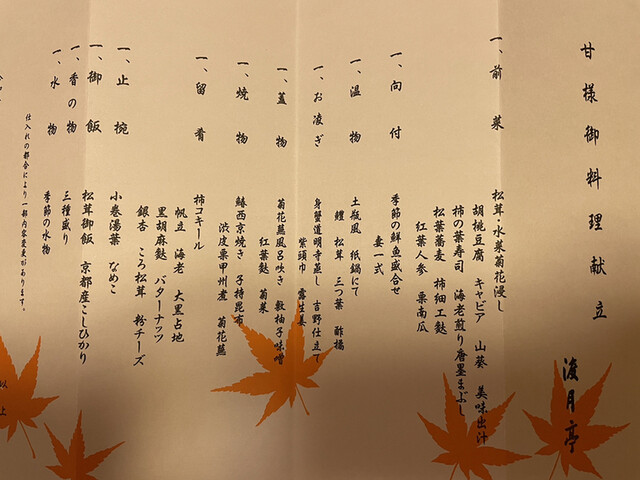 甘様御料理献立
渡月亭
一、前菜
松茸・水菜菊花浸し
胡桃豆腐 キャビア 山葵 美味出汁
柿の葉寿司 海老煎り唐墨まぶし
松葉蕎麦 柿細工麩
紅葉人参 栗南瓜
一、向付
季節の鮮魚盛合せ
妻一式
一、温物
土瓶風 紙鍋にて
鱧 松茸 三つ葉 酢橘
一、お凌ぎ
身蟹道明寺蒸し 吉野仕立て
紫頭巾 露生姜
一、蓋物
菊花蕪風呂吹き 敷柚子味噌
紅葉麩 菊菜
一、焼物
鰆西京焼き 子持昆布
渋皮栗甲州煮 菊花蕪
一、留肴
柿コキール
帆立 海老 大黒占地
黒胡麻麩 バターナッツ
銀杏 ころ松茸 粉チーズ
一、止椀
小巻湯葉 なめこ
一、御飯
松茸御飯 京都産こしひかり
一、香の物
三種盛り
一、水物
季節の水物
仕入れの都合により一部内容変更があります。
以上